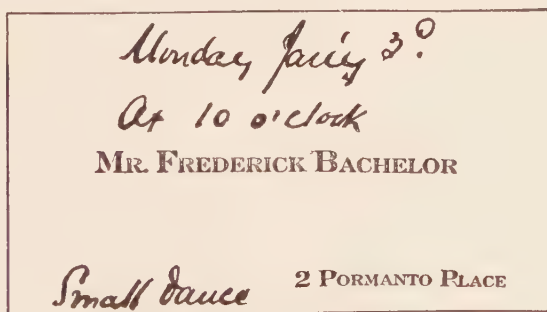 Monday Jan'y 3º
At 10 o'clock
MR. FREDERICK BACHELOR
Small dance 2 PORMANTO PLACE